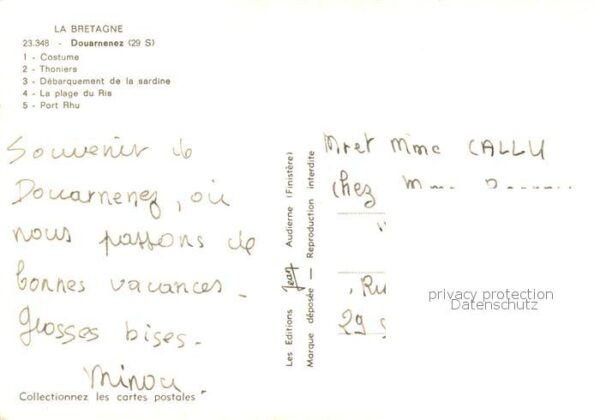 LA BRETAGNE
23.348 - Douarnenez (29 S)
1 - Costume
2 - Thoniers
3 - Débarquement de la sardine
4 - La plage du Ris
5 - Port Rhu
Souvenir de
Douarnenez, où
nous passons de
bonnes vacances.
Grosses bises.
Minou.
Collectionnez les cartes postales
Les Editions Jean Audierne (Finistère)
Marque déposée — Reproduction interdite
Mr et Mme CALLU
chez M
Ru
29 S
privacy protection
Datenschutz